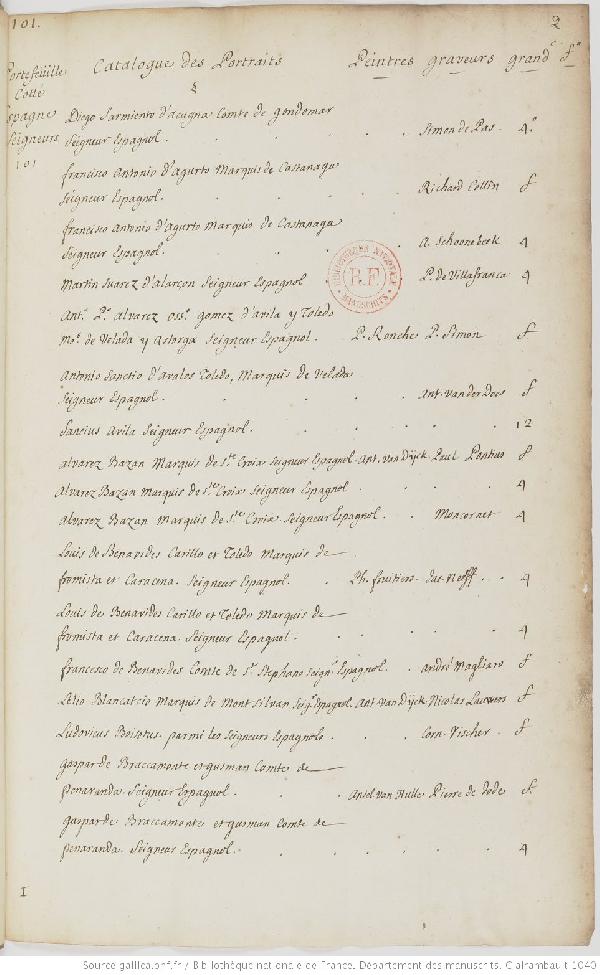 101. 2
Portefeüille Catalogue des Portraits Peintres graveurs grandr f°
Cotté §
Espagne Diego Sarmiento d'acugna Comte de gondomar
Seigneurs Seigneur Espagnol. Simon de Pas. 4°
101 francisco Antonio d'Agurto Marquis de Castanaga
Seigneur Espagnol. Richard Collin f
francisco Antonio d'Agurto Marquis de Castanaga
Seigneur Espagnol. A. Schoonebeek 4
Martin Suarez d'alarçon Seigneur Espagnol P. de Villafranca 4
BIBLIOTHEQUE NATIONALE R.F. MANUSCRITS
Ant. P. alvarez oss. gomez d'avila y Toledo
M. de Velada y Astorga Seigneur Espagnol. P. Ronche P. Simon f
Antonio Sanctio d'Avalos Toledo, Marquis de Velada
Seigneur Espagnol. Ant. Vander Does f
Sancius Avila Seigneur Espagnol. 12
alvarez Bazan Marquis de Ste Croix Seigneur Espagnol Ant. Van Dijck Paul Pontius f
Alvarez Bazan Marquis de Ste Croix Seigneur Espagnol 4
Alvarez Bazan Marquis de Ste Croix Seigneur Espagnol. Moncornet 4
Louis de Benavides Carillo et Toledo Marquis de
fromista et Caracena. Seigneur Espagnol. Ph. fruitiers 4
Louis de Benavides Carillo et Toledo Marquis de
fromista et Caracena. Seigneur Espagnol. 4
francesco de Benavides Comte de St Stephano Seigr Espagnol. André Magliar f
Lelio Blancatcio Marquis de Mont Silvan Seigr Espagnol Ant. Van Dijck Nicolas Lauwers f
Ludovicus Boisotus. parmi les Seigneurs Espagnols. Corn. Vischer f
gaspar de Braccamonte et gusman Comte de
penaranda. Seigneur Espagnol. Ansel. van Hulle Pierre de Jode f
gaspar de Braccamonte et gusman Comte de
penaranda. Seigneur Espagnol. 4
1
Source gallica.bnf.fr / Bibliothèque nationale de France. Département des manuscrits. Clairambault 1040